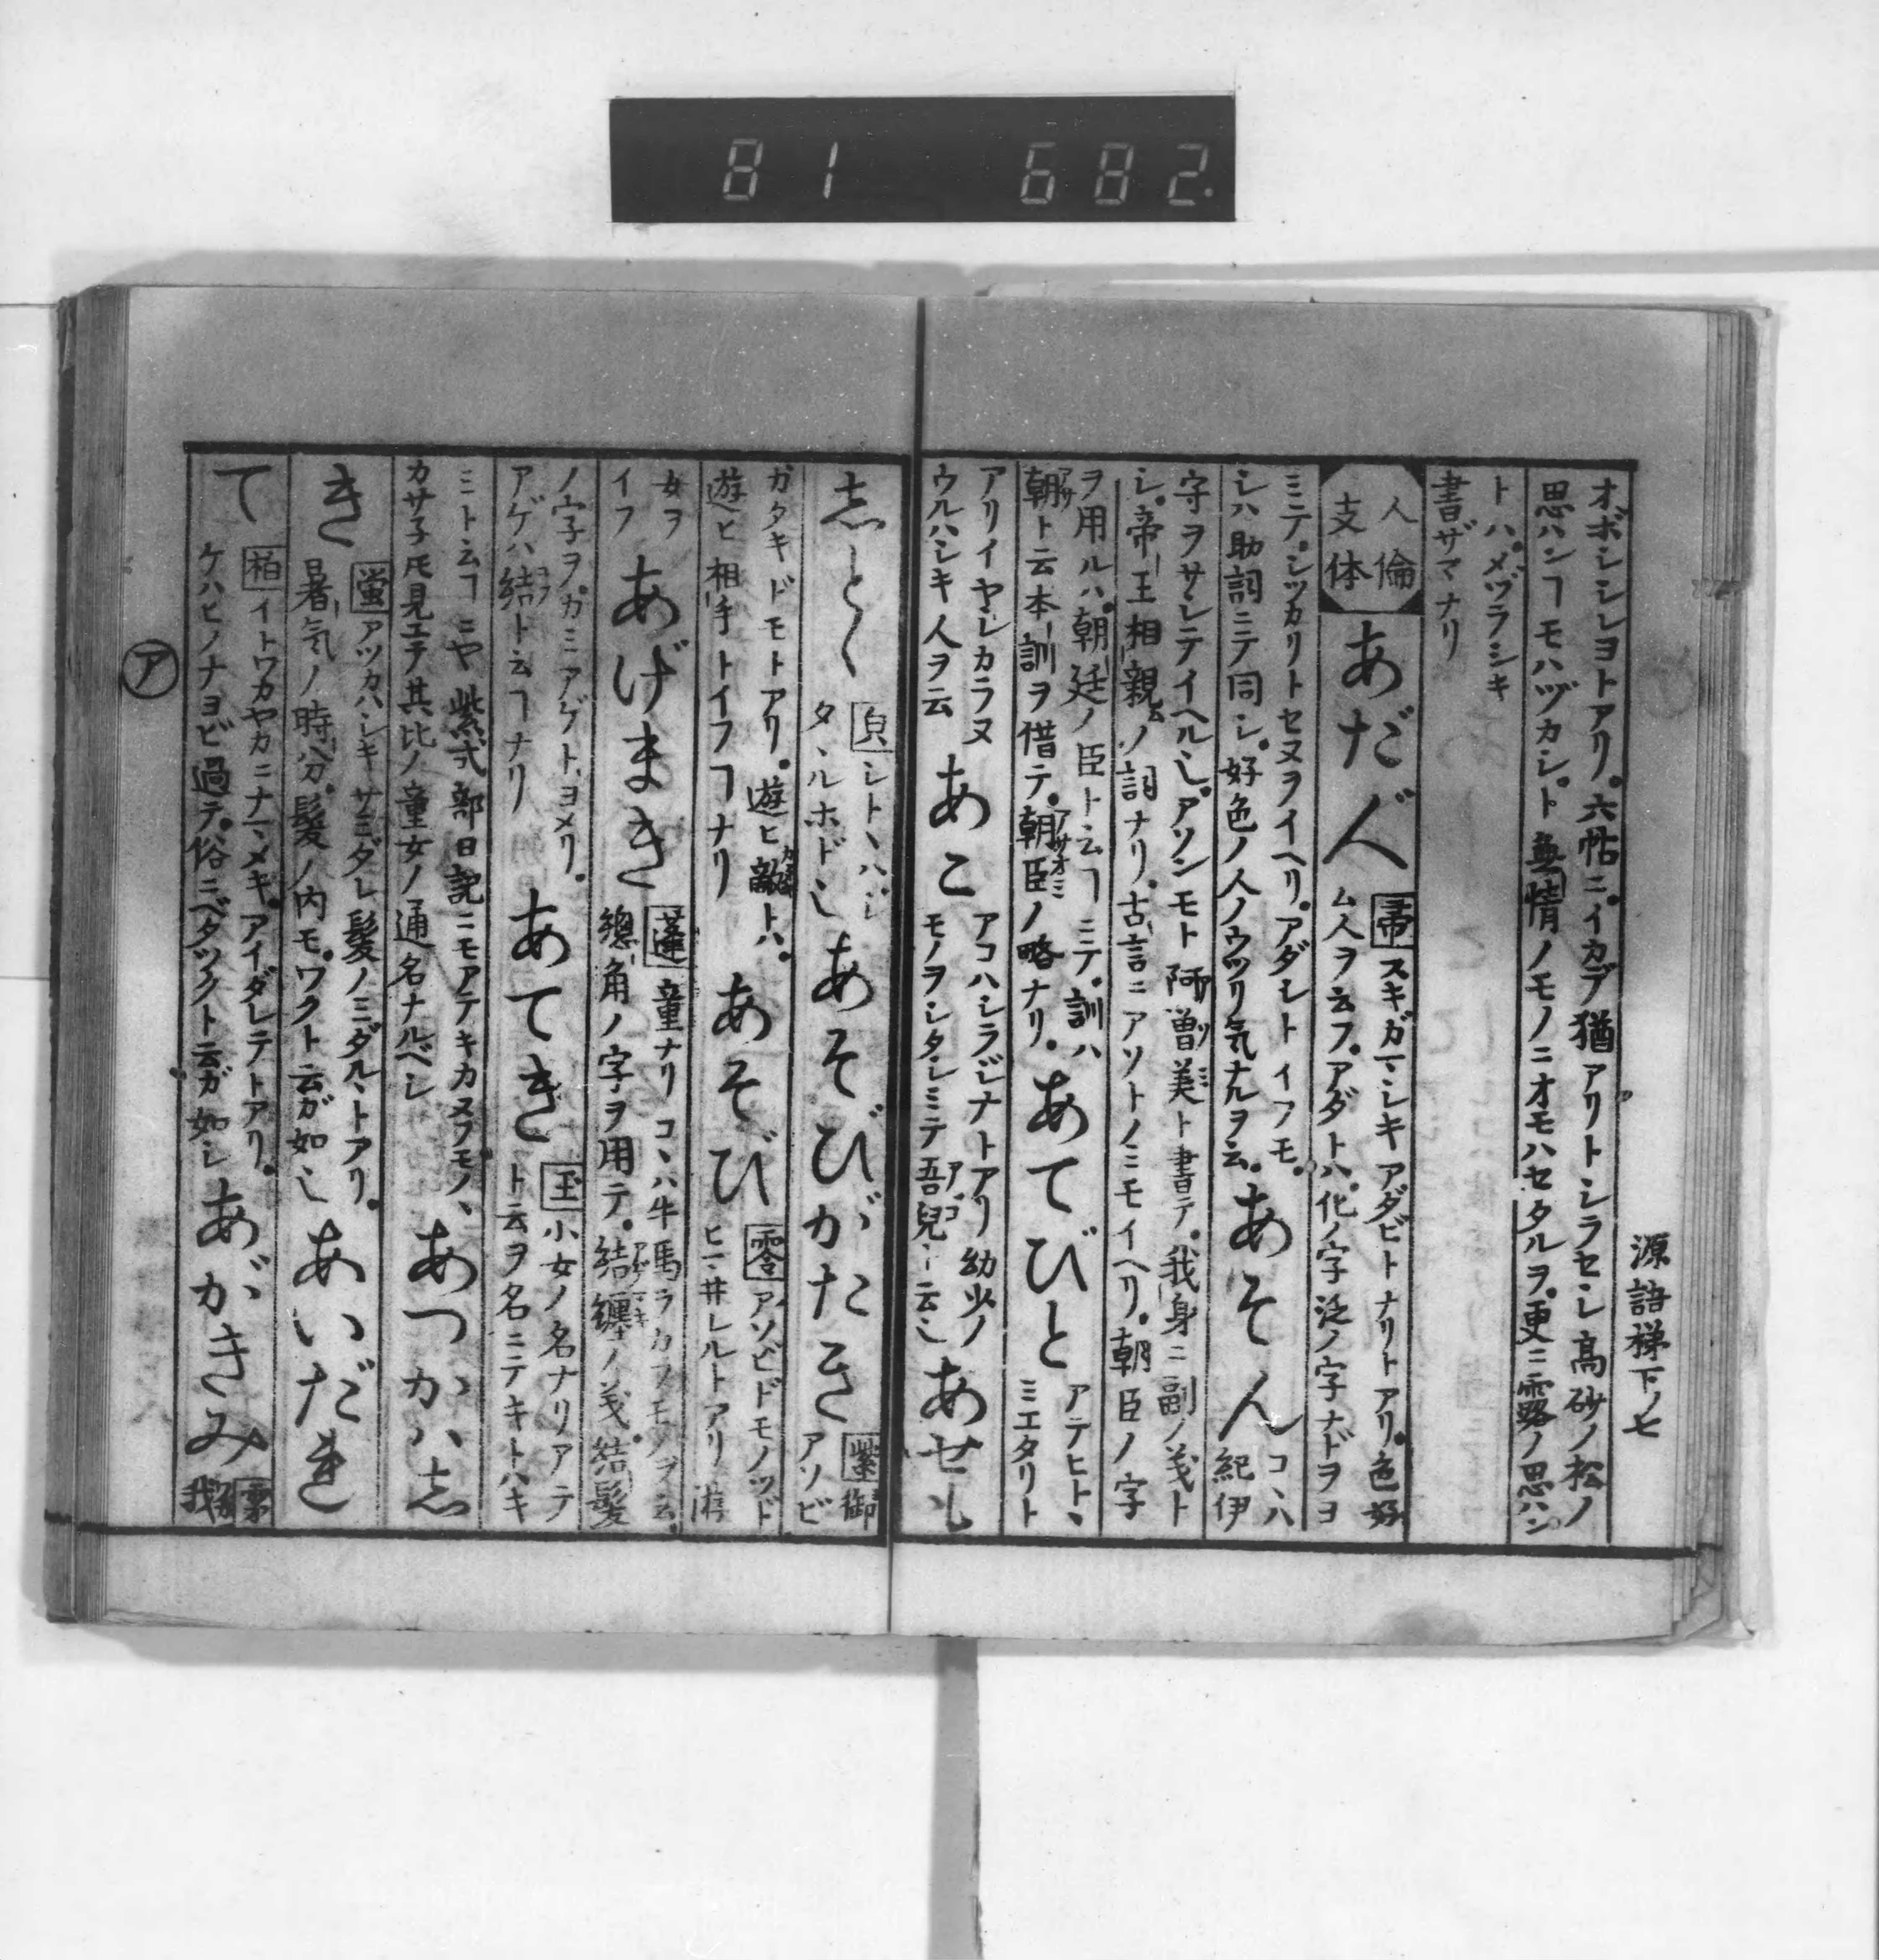 81 682.
源語梯下ノ七
オボシシレヨトアリ。六帖ニ。イカデ猶アリトシラセシ高砂ノ松ノ
思ハンヿモハヅカシ。ト無情ノモノニオモハセタルヲ。更ニ露ノ思ハン
トハ。メヅラシキ
書ザマナリ
人倫
支体
あだ人
帚スキガマシキアダビトナリトアリ。色好
ム人ヲ云フ。アダトハ。化ノ字泛ノ字ナドヲヨ
ミテ。シツカリトセヌヲイヘリ。アダシトイフモ。
シハ助詞ニテ同シ。好色ノ人ノウツリ気ナルヲ云。
あそん
コヽハ
紀伊
守ヲサシテイヘルシ。アソンモト阿曽美ト書テ。我身ニ副ノ義ト
シ。帝王相親ノ詞ナリ。古言ニアソトノミモイヘリ。朝臣ノ字
ヲ用ルハ。朝廷ノ臣ト云ヿニテ。訓ハ
朝ト云本訓ヲ借テ。朝臣ノ略ナリ。
あてびと
アテヒトヽ
ミエタリト
アリイヤシカラヌ
ウルハシキ人ヲ云
あこ
アコハシラジナトアリ幼少ノ
モノヲシタシミテ吾兒ト云シ
あせも
志とく
シトヽハジ
タヽルホドシ
あそびがたき
紫御
アソビ
ガタキドモトアリ。遊ヒ敵トハ。
遊ヒ相手トイフヿナリ
あそび
零アソビドモノツド
ヒマ井レルトアリ游
女ヲ
イフ
あげまき
蓬童ナリコヽハ牛馬ラカフモノヲ云。
總角ノ字ヲ用テ。結纏ノ義。結髪
ノ字ヲ。カミアゲト、ヨメリ。
アゲハ結ト云ヿナリ
あてき
玉小女ノ名ナリアテ
ト云ヲ名ニテキトハキ
ミト云ヿニヤ紫式部日記ニモアテキカヌフモノヽ
カサ子圧見エテ其比ノ童女ノ通名ナルベシ
あつかハ志
き
蛍アツカハシキサミダレ髪ノミダルヽトアリ。
暑気ノ時分。髪ノ内モ。ワクト云ガ如シ
あいだれ
て
柏イトワカヤカニナマメキ。アイダレテトアリ。
ケハヒノナヨビ過テ。俗ニベタツクト云ガ如シ
あがきみ
我
ア